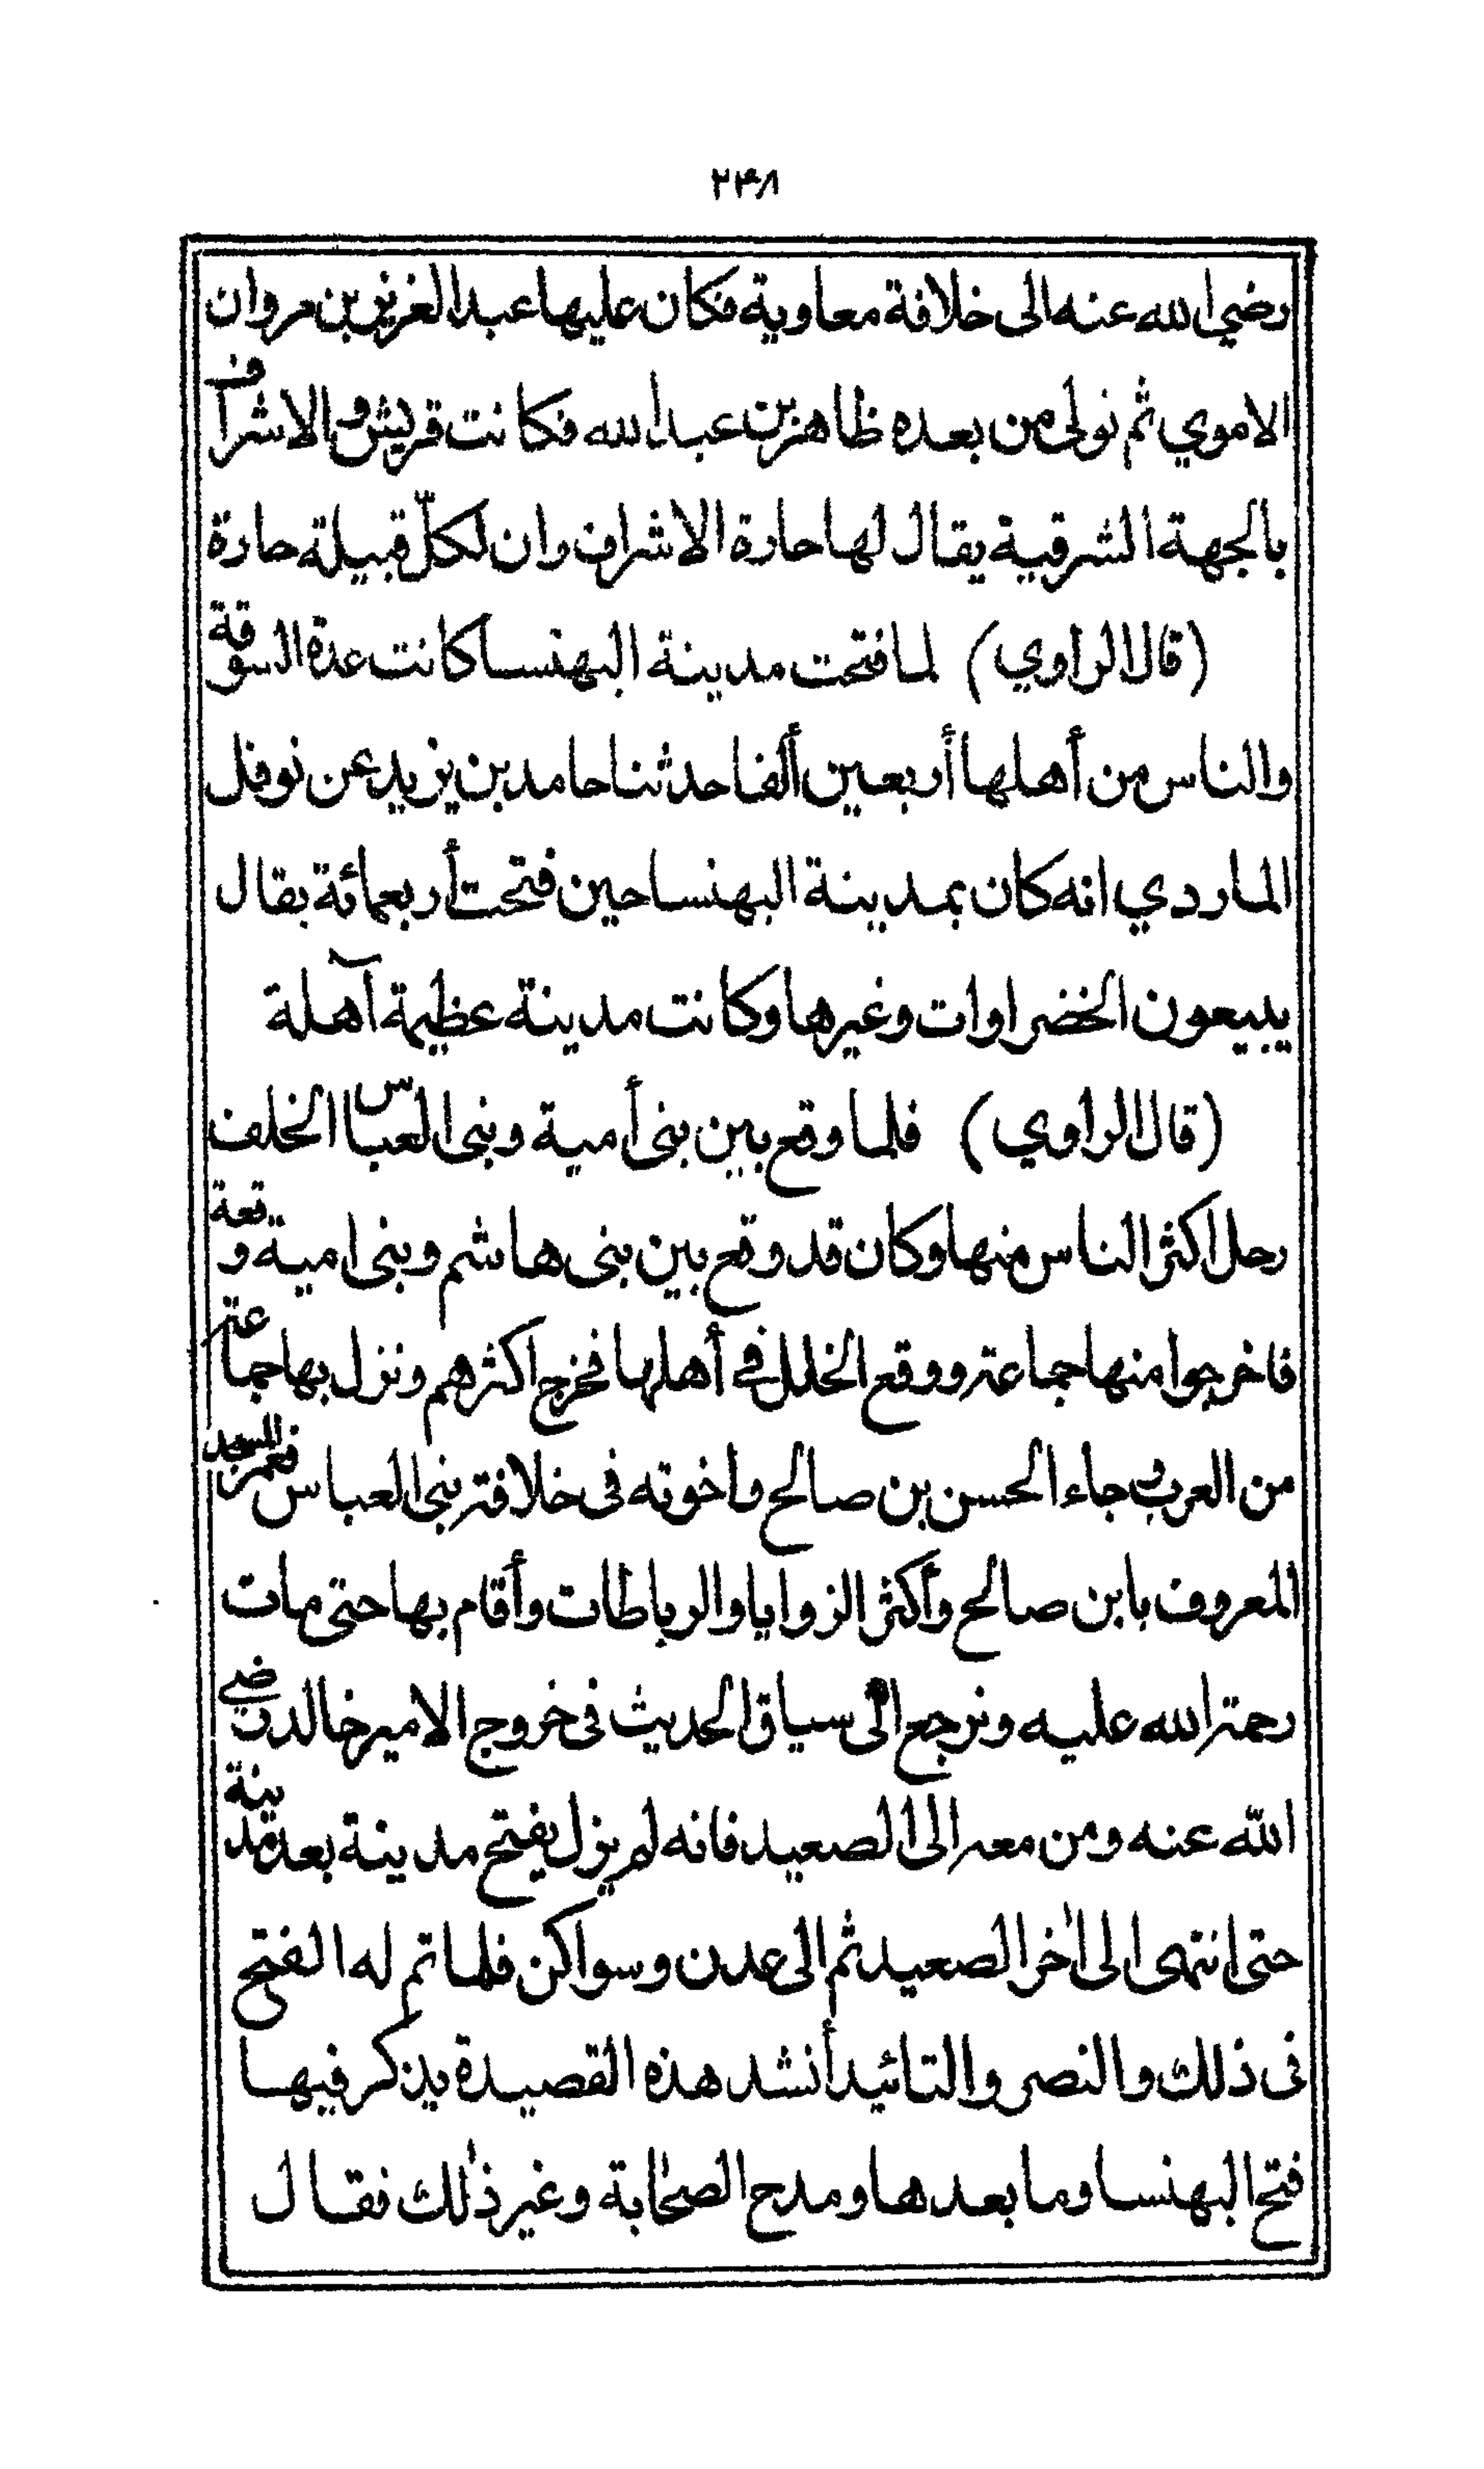 ٢٣٨
رضي الله عنه الى خلافة معاوية فكان عليها عبد العزيز بن مروان
الاموي ثم تولى من بعده طاهر بن عبد الله فكانت قريش والاشراف
بالجهة الشرقية يقال لها حارة الاشراف وان لكلّ قبيلة حارة
(قال الراوي) لما فتحت مدينة البهنسا كانت عدة السوقة
والناس من أهلها أربعين ألفا حدثنا حامد بن يزيد عن نوفل
الماردي انه كان بمدينة البهنسا حين فتحت أربعمائة بقال
يبيعون الخضراوات وغيرها وكانت مدينة عظيمة آهلة
(قال الراوي) فلما وقع بين بنى أمية وبنى العباس الخلف
رحل اكثر الناس منها وكان قد وقع بين بنى هاشم وبنى امية وقعة
فاخرجوا منها جماعة ووقع الخلل في أهلها فخرج اكثرهم ونزل بها جماعة
من العرب وجاء الحسن بن صالح واخوته فى خلافة بنى العباس فعمر المسجد
المعروف بابن صالح وأكثر الزوايا والرباطات وأقام بها حتى مات
رحمة الله عليه ونرجع الى سياق الحديث فى خروج الامير خالد رضي
اللّه عنه ومن معه الى الصعيد فانه لم يزل يفتح مدينة بعد مدينة
حتى انتهى الى اٰخر الصعيد ثم الى عدن وسواكن فلما تم له الفتح
فى ذلك والنصر والتائيد أنشد هذه القصيدة يذكر فيها
فتح البهنسا وما بعدها ومدح الصحٰابة وغير ذٰلك فقال